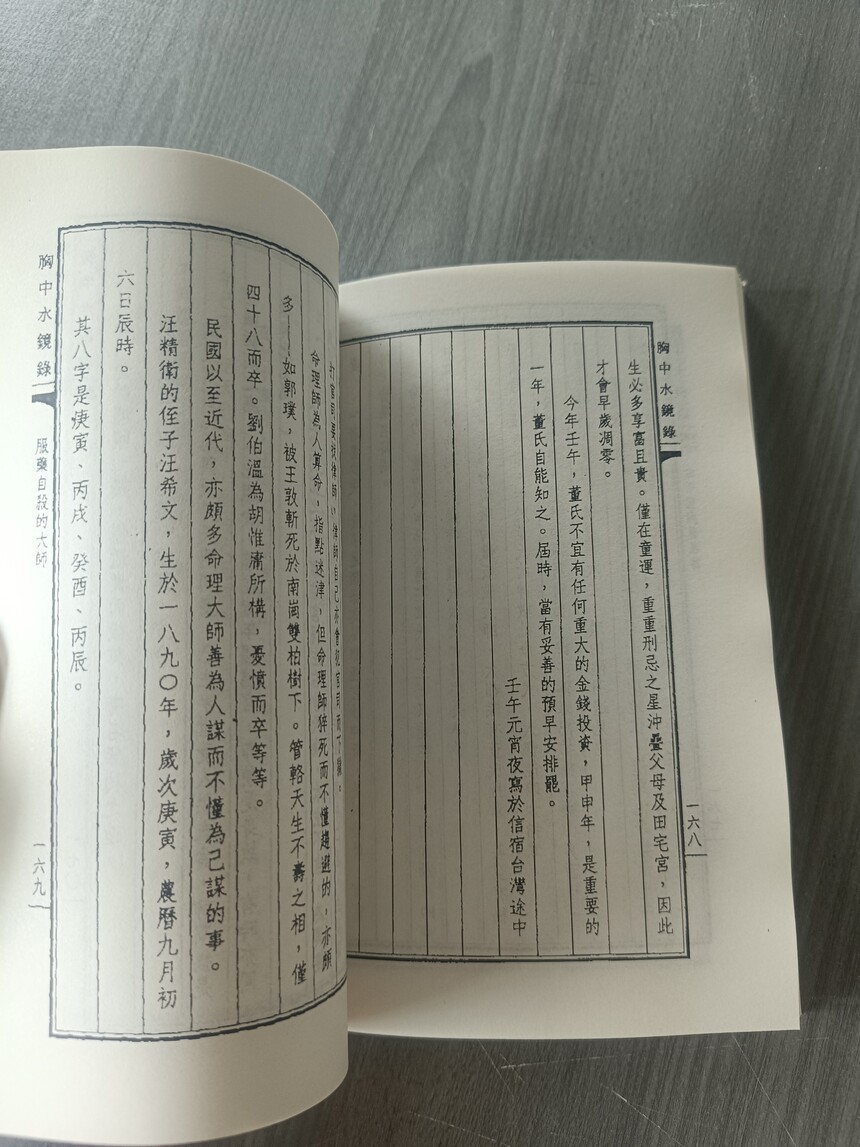 胸中水鏡錄
一六八
生必多享富且貴。僅在童運，重重刑忌之星沖疊父母及田宅宮，因此
才會早歲凋零。
今年壬午，董氏不宜有任何重大的金錢投資，甲申年，是重要的
一年，董氏自能知之。屆時，當有妥善的預早安排罷。
壬午元宵夜寫於信宿台灣途中
打官司要找律師，律師自己亦會犯官司而下獄。
命理師為人算命，指點迷津，但命理師猝死而不懂趨避的，亦頗
多——如郭璞，被王敦斬死於南崗雙柏樹下。管輅天生不壽之相，僅
四十八而卒。劉伯溫為胡惟庸所構，憂憤而卒等等。
民國以至近代，亦頗多命理大師善為人謀而不懂為己謀的事。
汪精衛的侄子汪希文，生於一八九〇年，歲次庚寅，農曆九月初
六日辰時。
其八字是庚寅、丙戌、癸酉、丙辰。
胸中水鏡錄
服藥自殺的大師
一六九